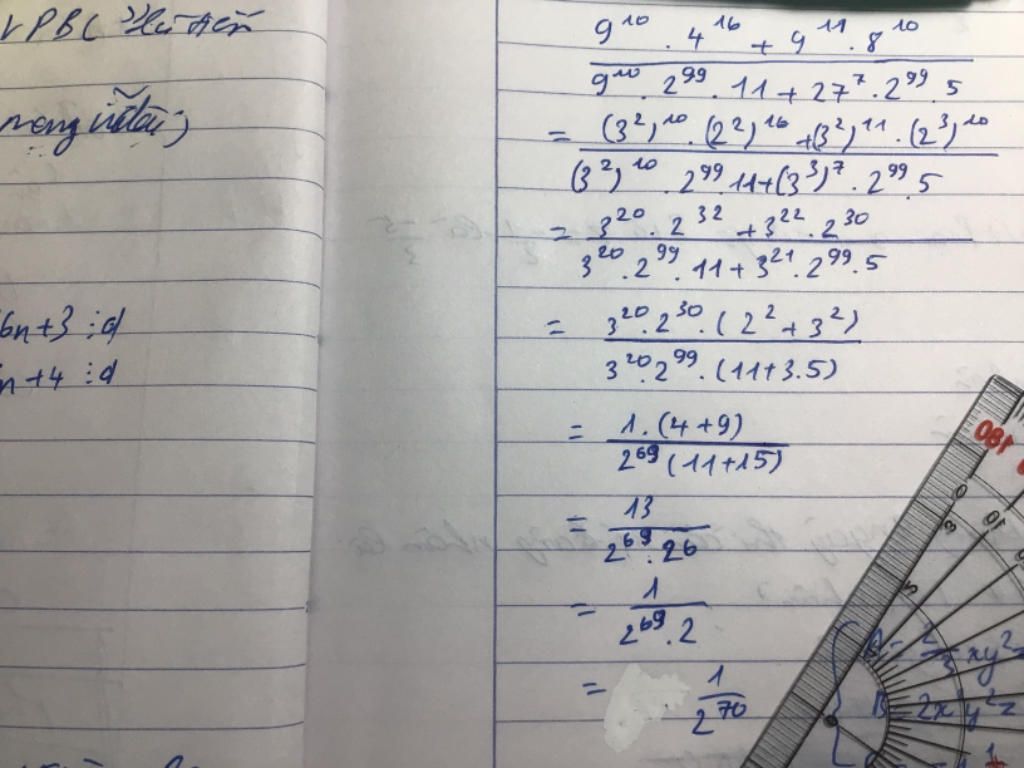 6n+3 ⋮d
n+4 ⋮d
9^10 . 4^16 + 9^11 . 8^10
9^10 . 2^99 . 11 + 27^7 . 2^99 . 5
= (3^2)^10 . (2^2)^16 + (3^2)^11 . (2^3)^10
(3^2)^10 . 2^99 . 11 + (3^3)^7 . 2^99 . 5
= 3^20 . 2^32 + 3^22 . 2^30
3^20 . 2^99 . 11 + 3^21 . 2^99 . 5
= 3^20 . 2^30 . (2^2 + 3^2)
3^20 . 2^99 . (11+3.5)
= 1 . (4+9)
2^69 (11+15)
= 13
2^69 . 26
= 1
2^69 . 2
= 1
2^70
180
0
10
A = 2/3 xy^2
B 2x y^2